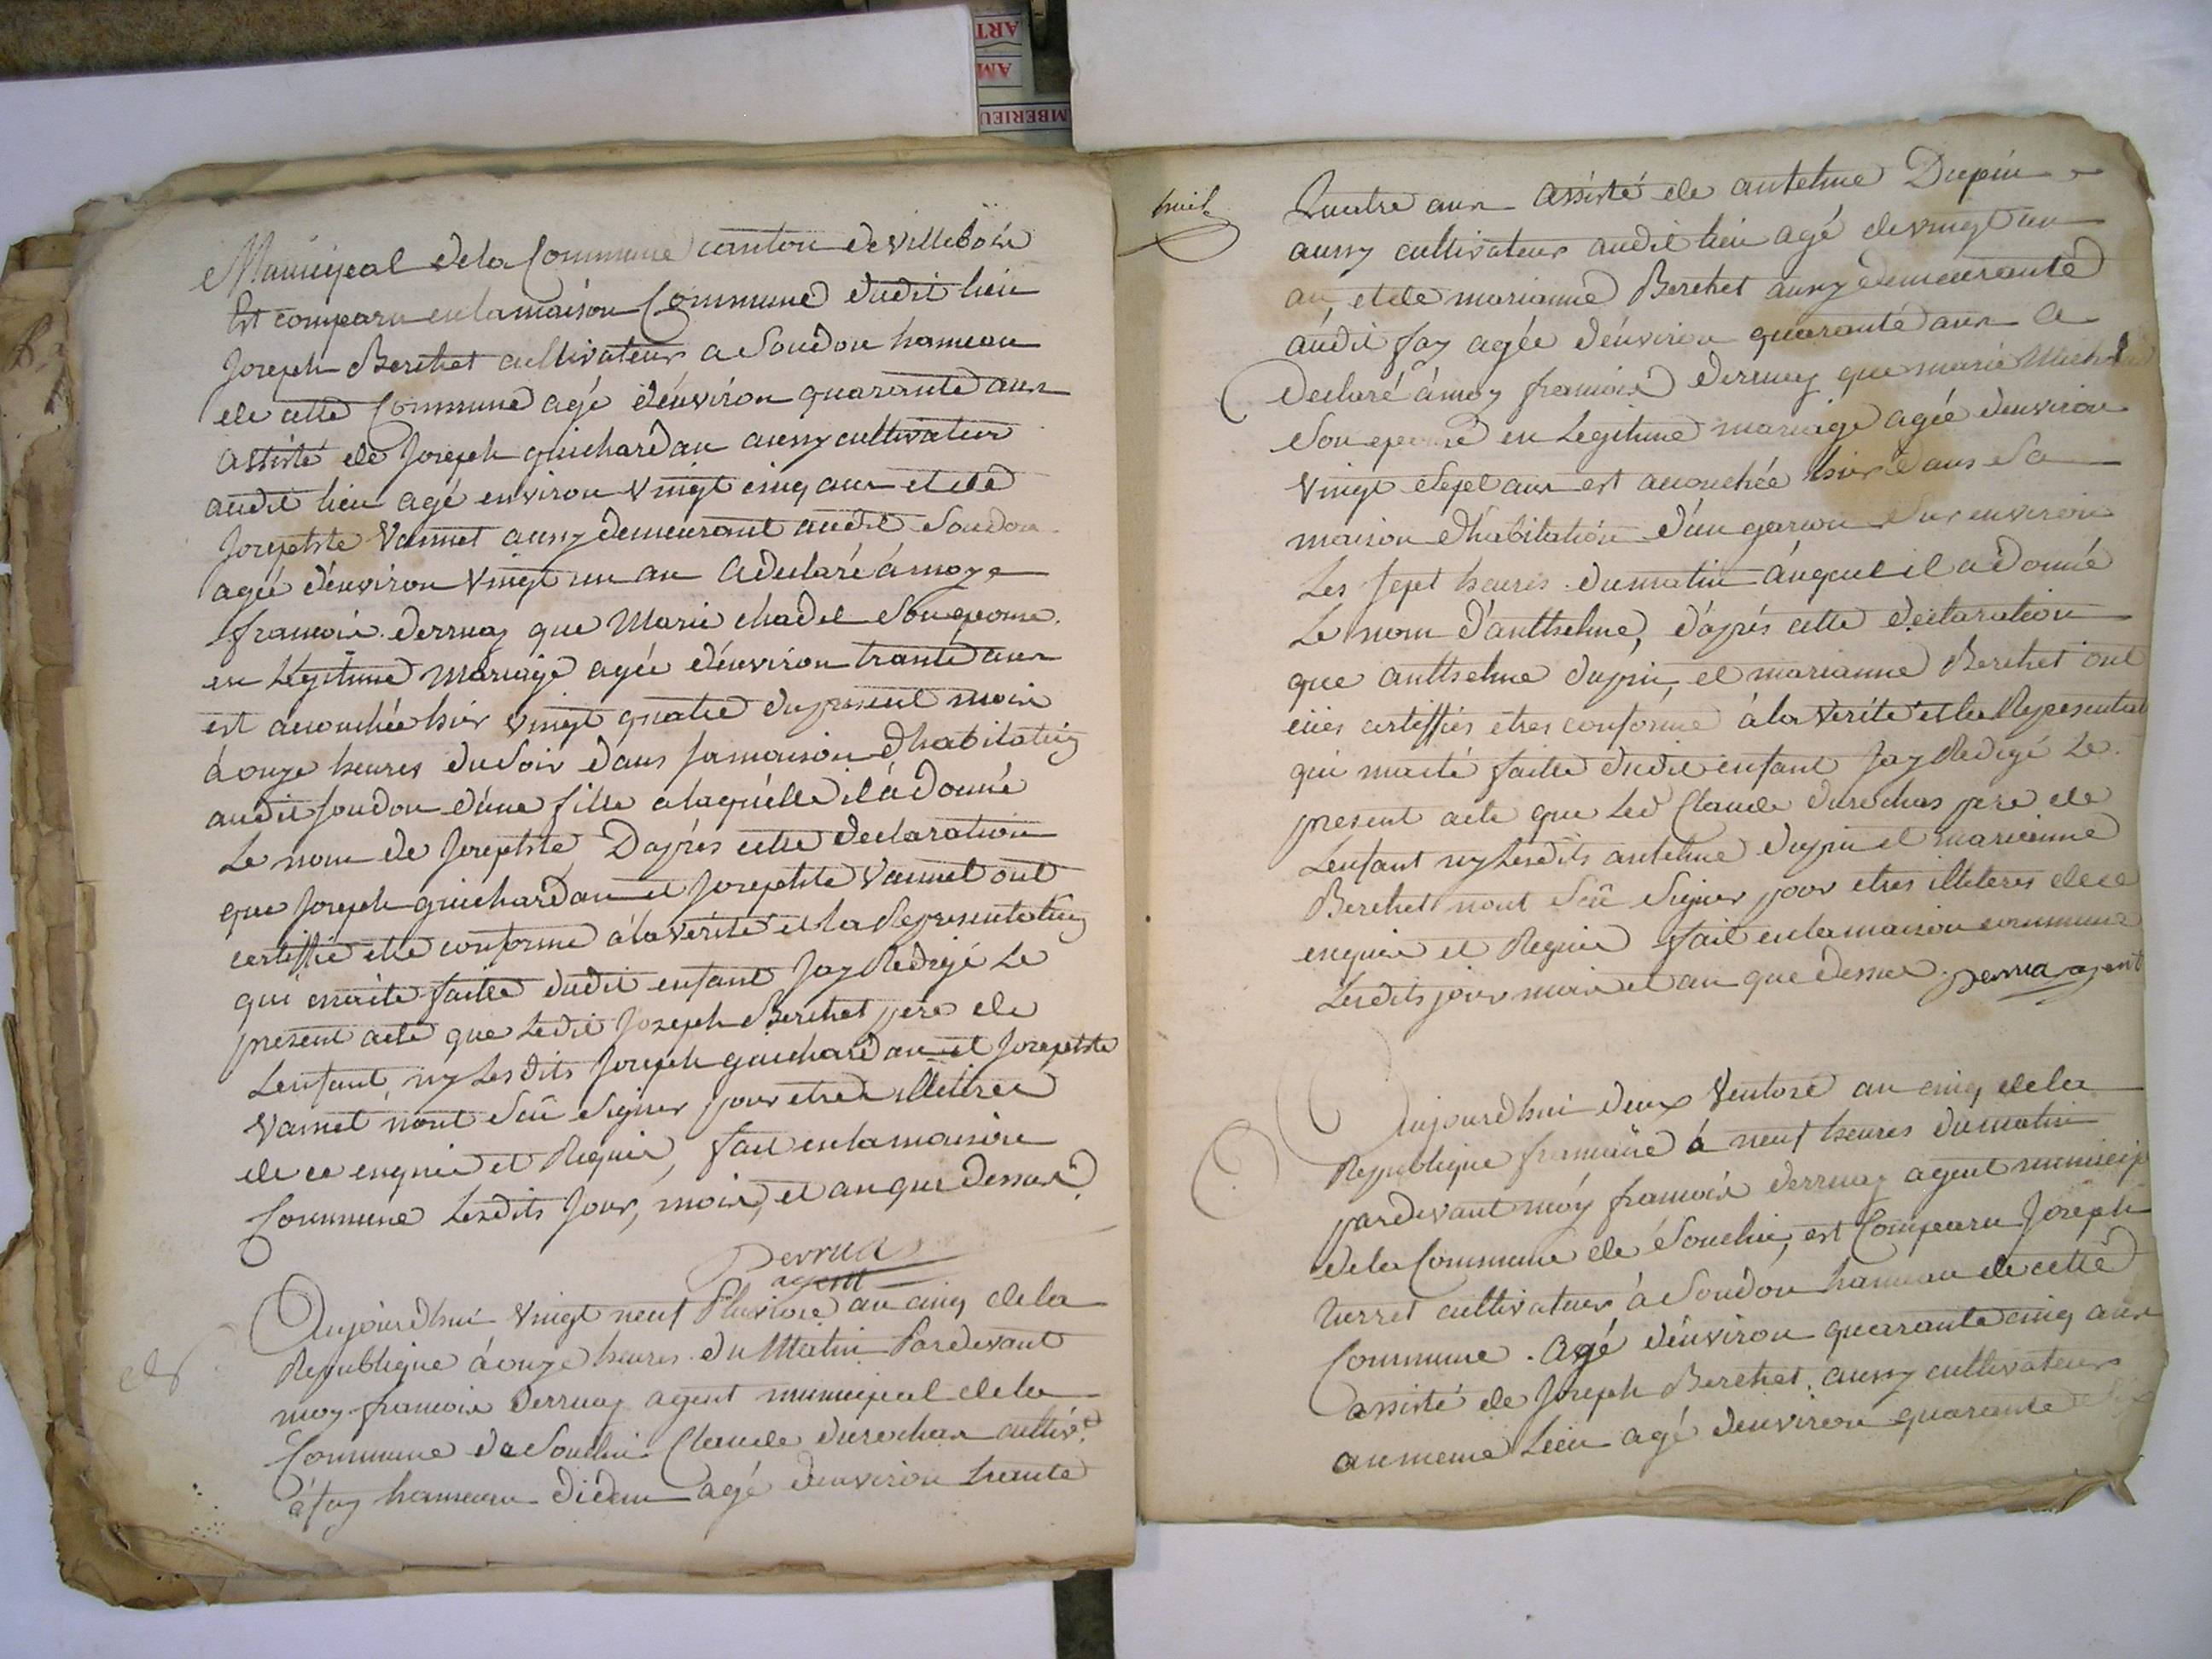 ART
AM
MBERIEU
Municipal dela Commune canton de villebois
Est comparu en la maison Commune dudit lieu
Joseph Berthet cultivateur a Soudon hameau
de cette Commune agé d'environ quarante ans
assisté de Joseph guichardan aussy cultivateur
audit lieu agé environ vingt cinq ans et de
Josephte Vannet aussy demeurant audit Soudon
agée d'environ vingt un an a declaré à moy
francois derruaz que Marie chadel Son epouse
en Legitime mariage agée d'environ trante ans
est acouchée hier vingt quatre du present mois
à onze heures du Soir dans sa maison d'habitation
audit soudon d'une fille a laquelle il a donné
Le nom de Josephte D'aprés cette declaration
que Joseph guichardan et Josephte Vannet ont
certiffié etre conforme à la verité et la Representation
qui m'aité faitte dudit enfant Jay Redigé Le
present acte que Ledit Joseph Berthet pere de
Lenfant, ny Lesdits Joseph guichardan et Josephte
Vannet nont Scû Signer pour etre illitrés
de ce enquis et Requis, fait en la maison
Commune Lesdits Jour, mois, et an que dessus
Derrua
agent
Aujourdhui vingt neuf Pluviose an cinq dela
Republique à onze heures du Matin Pardevant
moy francois derruaz agent municipal dela
Commune de Souclin Claude durochas cultivr
à fay hameau didem agé d'environ trente
huit
Quatre ans assisté de antelme Dupin
aussy cultivateur audit lieu agé de vingt un
an, et de marianne Berthet aussy demeurante
audit fay agée d'environ quarante ans a
declaré à moy francois derruaz que marie
Son epouse en Legitime mariage agée d'environ
vingt Sept ans est acouchée hier dans Sa
maison d'habitation d'un garcon Sur environ
Les sept heures du matin auquel il a donné
Le nom d'anthelme, d'aprés cette declaration
que anthelme dupin, et marianne Berthet ont
eües certiffiés etres conforme à la verité et la Representat
qui maité faitte dudit enfant Jay Redigé Le
present acte que Led Claude durochas pere de
Lenfant ny Lesdits antelme dupin et marianne
Berthet nont Scû Signer pour etres illiteres de ce
enquis et Requis fait en la maison commune
Lesdits jour mois et an que dessus. Derrua agent
Aujourdhui deux Ventose an cinq dela
Republique francaise à neuf heures du matin
pardevant moy francois derruaz agent municip
dela Commune de Souclin, est Comparu Joseph
cultivateur à Soudon hameau de cette
Commune. Agé d'environ quarante cinq ans
assisté de Joseph Berthet, aussy cultivateur
au meme Lieu agé d'environ quarante